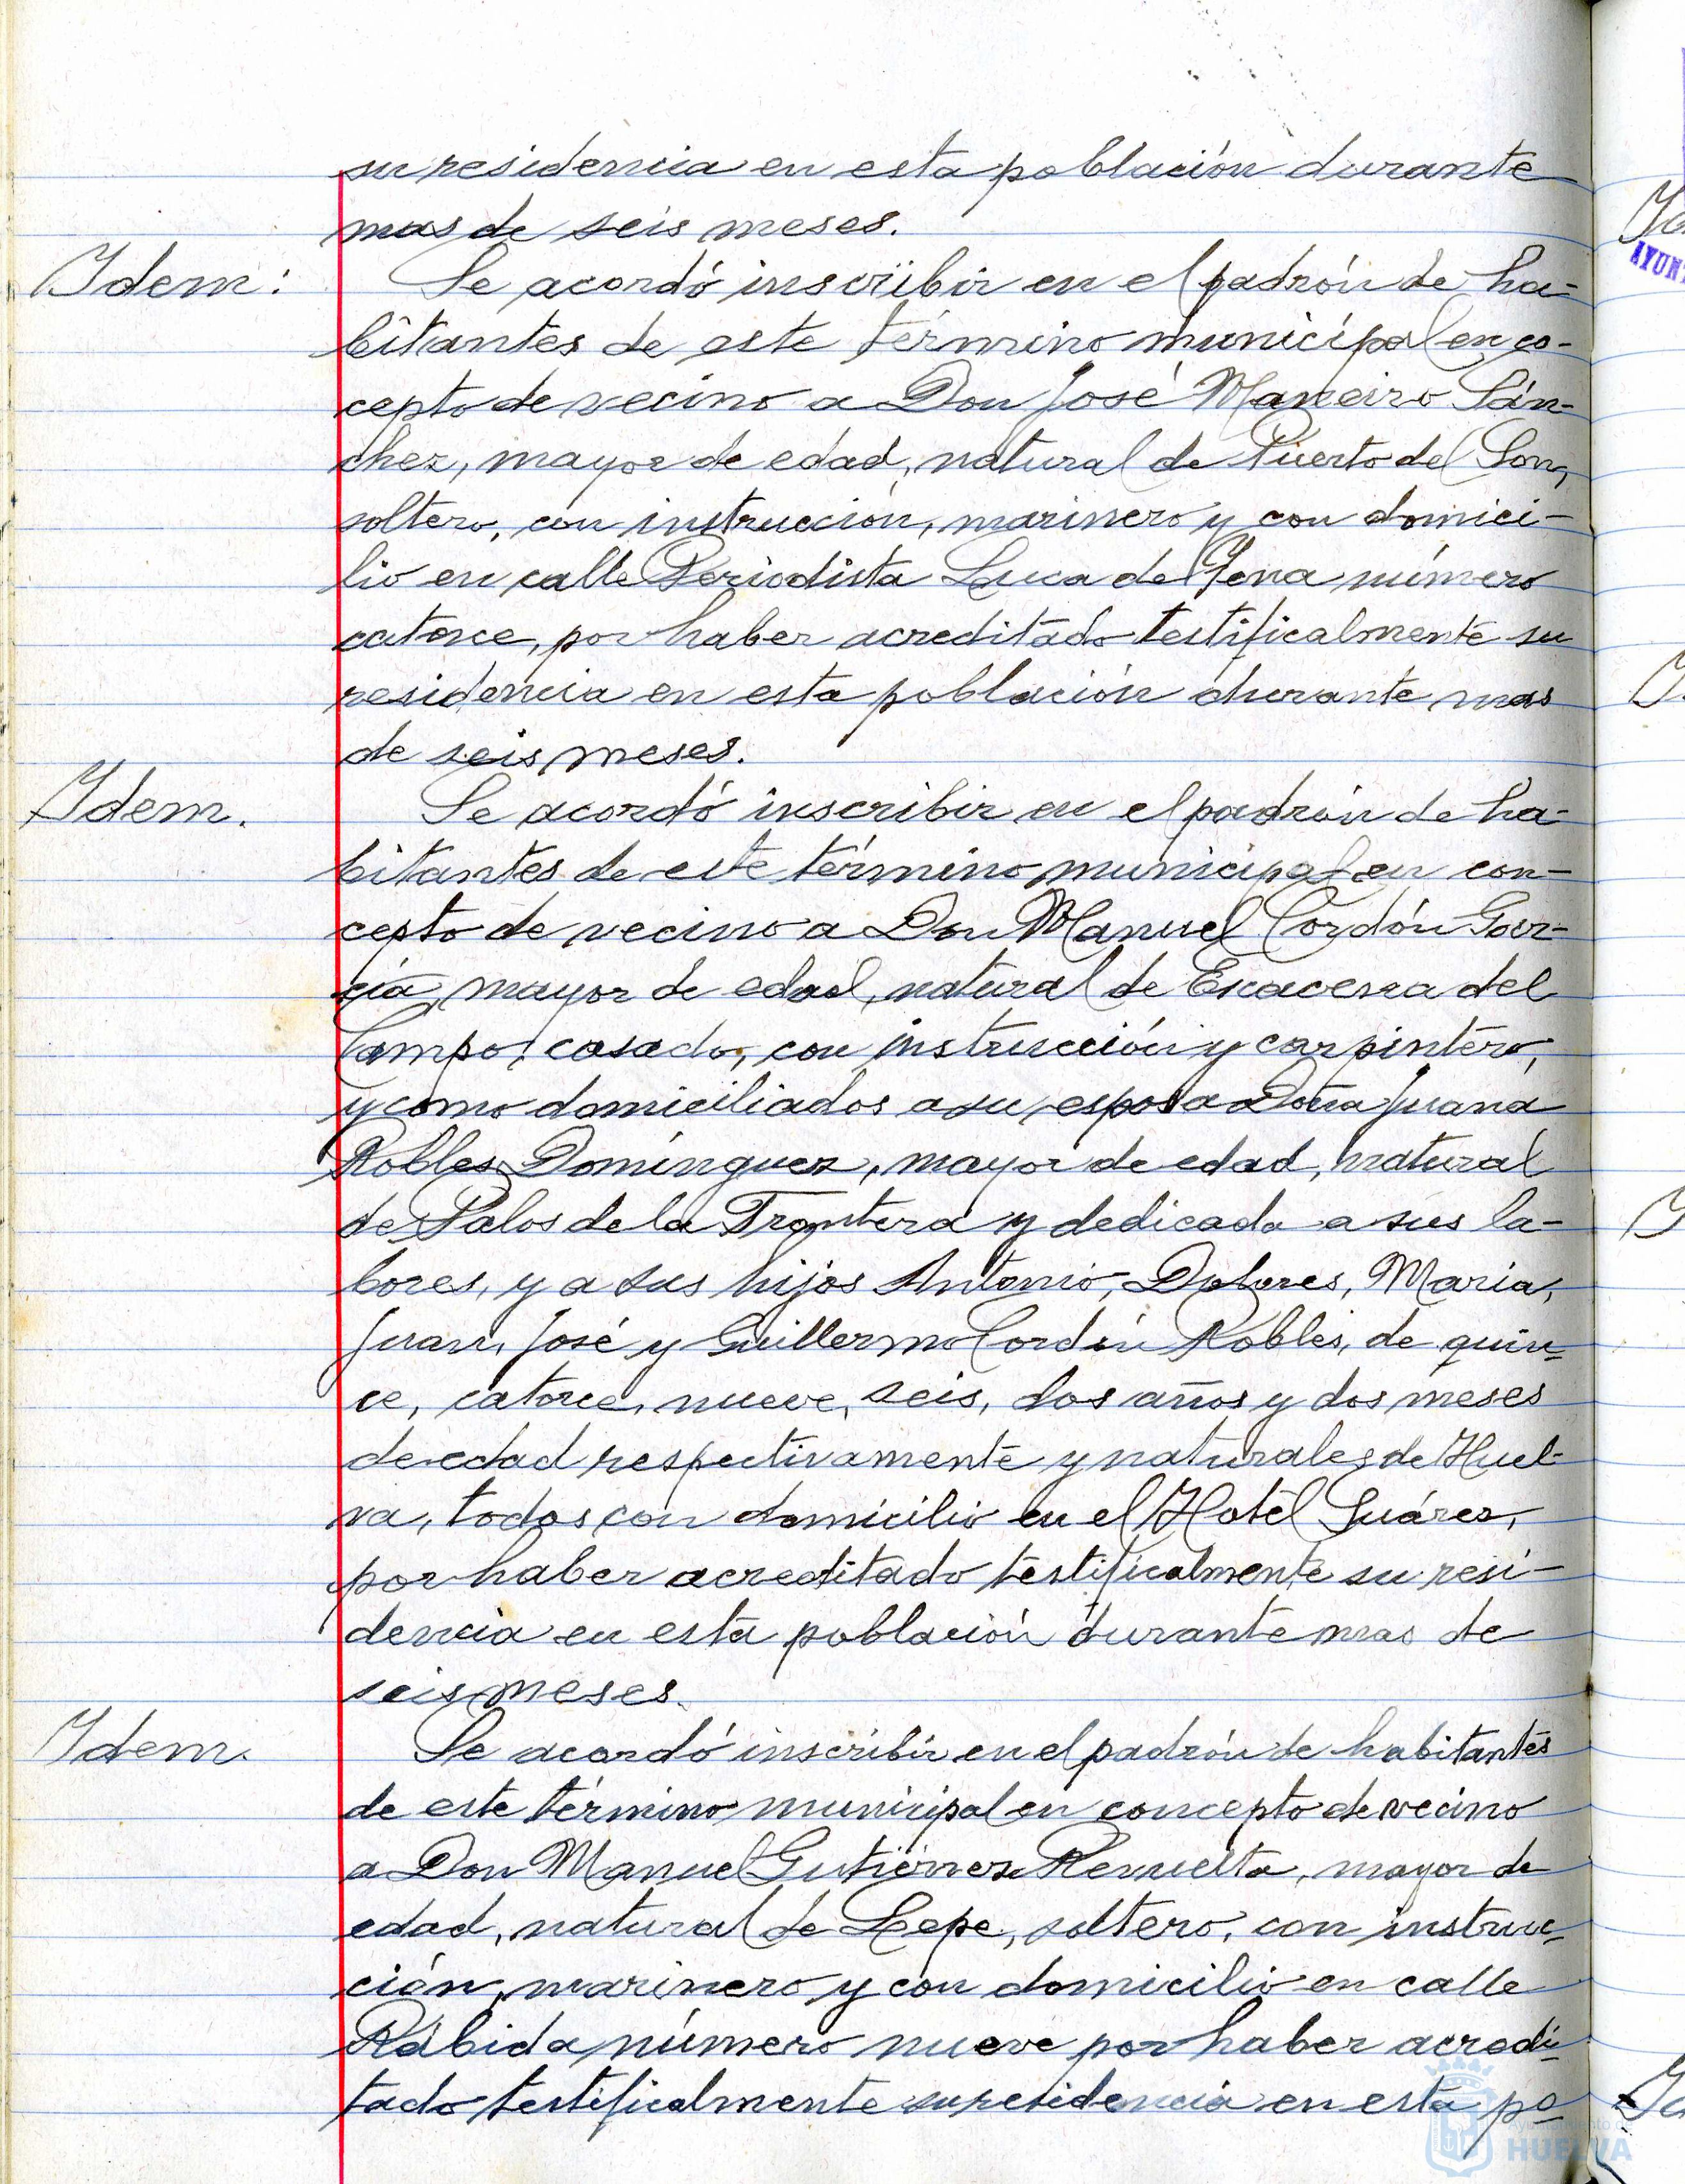 su residencia en esta población durante
mas de seis meses.
Idem:
Se acordó inscribir en el padrón de ha-
bitantes de este término municipal en co-
cepto de vecino a Don José Maneiro Sán-
chez, mayor de edad, natural de Puerto del Son,
soltero, con instrucción, marinero y con domici-
lio en calle Periodista Luca de Tena número
catorce, por haber acreditado testificalmente su
residencia en esta población durante mas
de seis meses.
Idem.
Se acordó inscribir en el padrón de ha-
bitantes de este término municipal en con-
cepto de vecino a Don Manuel Cordón Gar-
cía, mayor de edad, natural de Escacena del
Campo, casado, con instrucción y carpintero,
y como domiciliados a su esposa Doña Juana
Robles Domínguez, mayor de edad, natural
de Palos de la Frontera y dedicada a sus la-
bores, y a sus hijos Antonio, Dolores, Maria,
Juan, José y Guillermo Cordón Robles, de quin-
ce, catorce, nueve, seis, dos años y dos meses
de edad respectivamente y naturales de Huel-
va, todos con domicilio en el Hotel Suárez,
por haber acreditado testificalmente su resi-
dencia en esta población durante mas de
seis meses.
Idem.
Se acordó inscribir en el padrón de habitantes
de este término municipal en concepto de vecino
a Don Manuel Gutiérrez Revuelta, mayor de
edad, natural de Lepe, soltero, con instruc-
ción, marinero y con domicilio en calle
Rábida número nueve por haber acredi-
tado testificalmente su residencia en esta po-
Ayuntamiento de
HUELVA
AYUNT